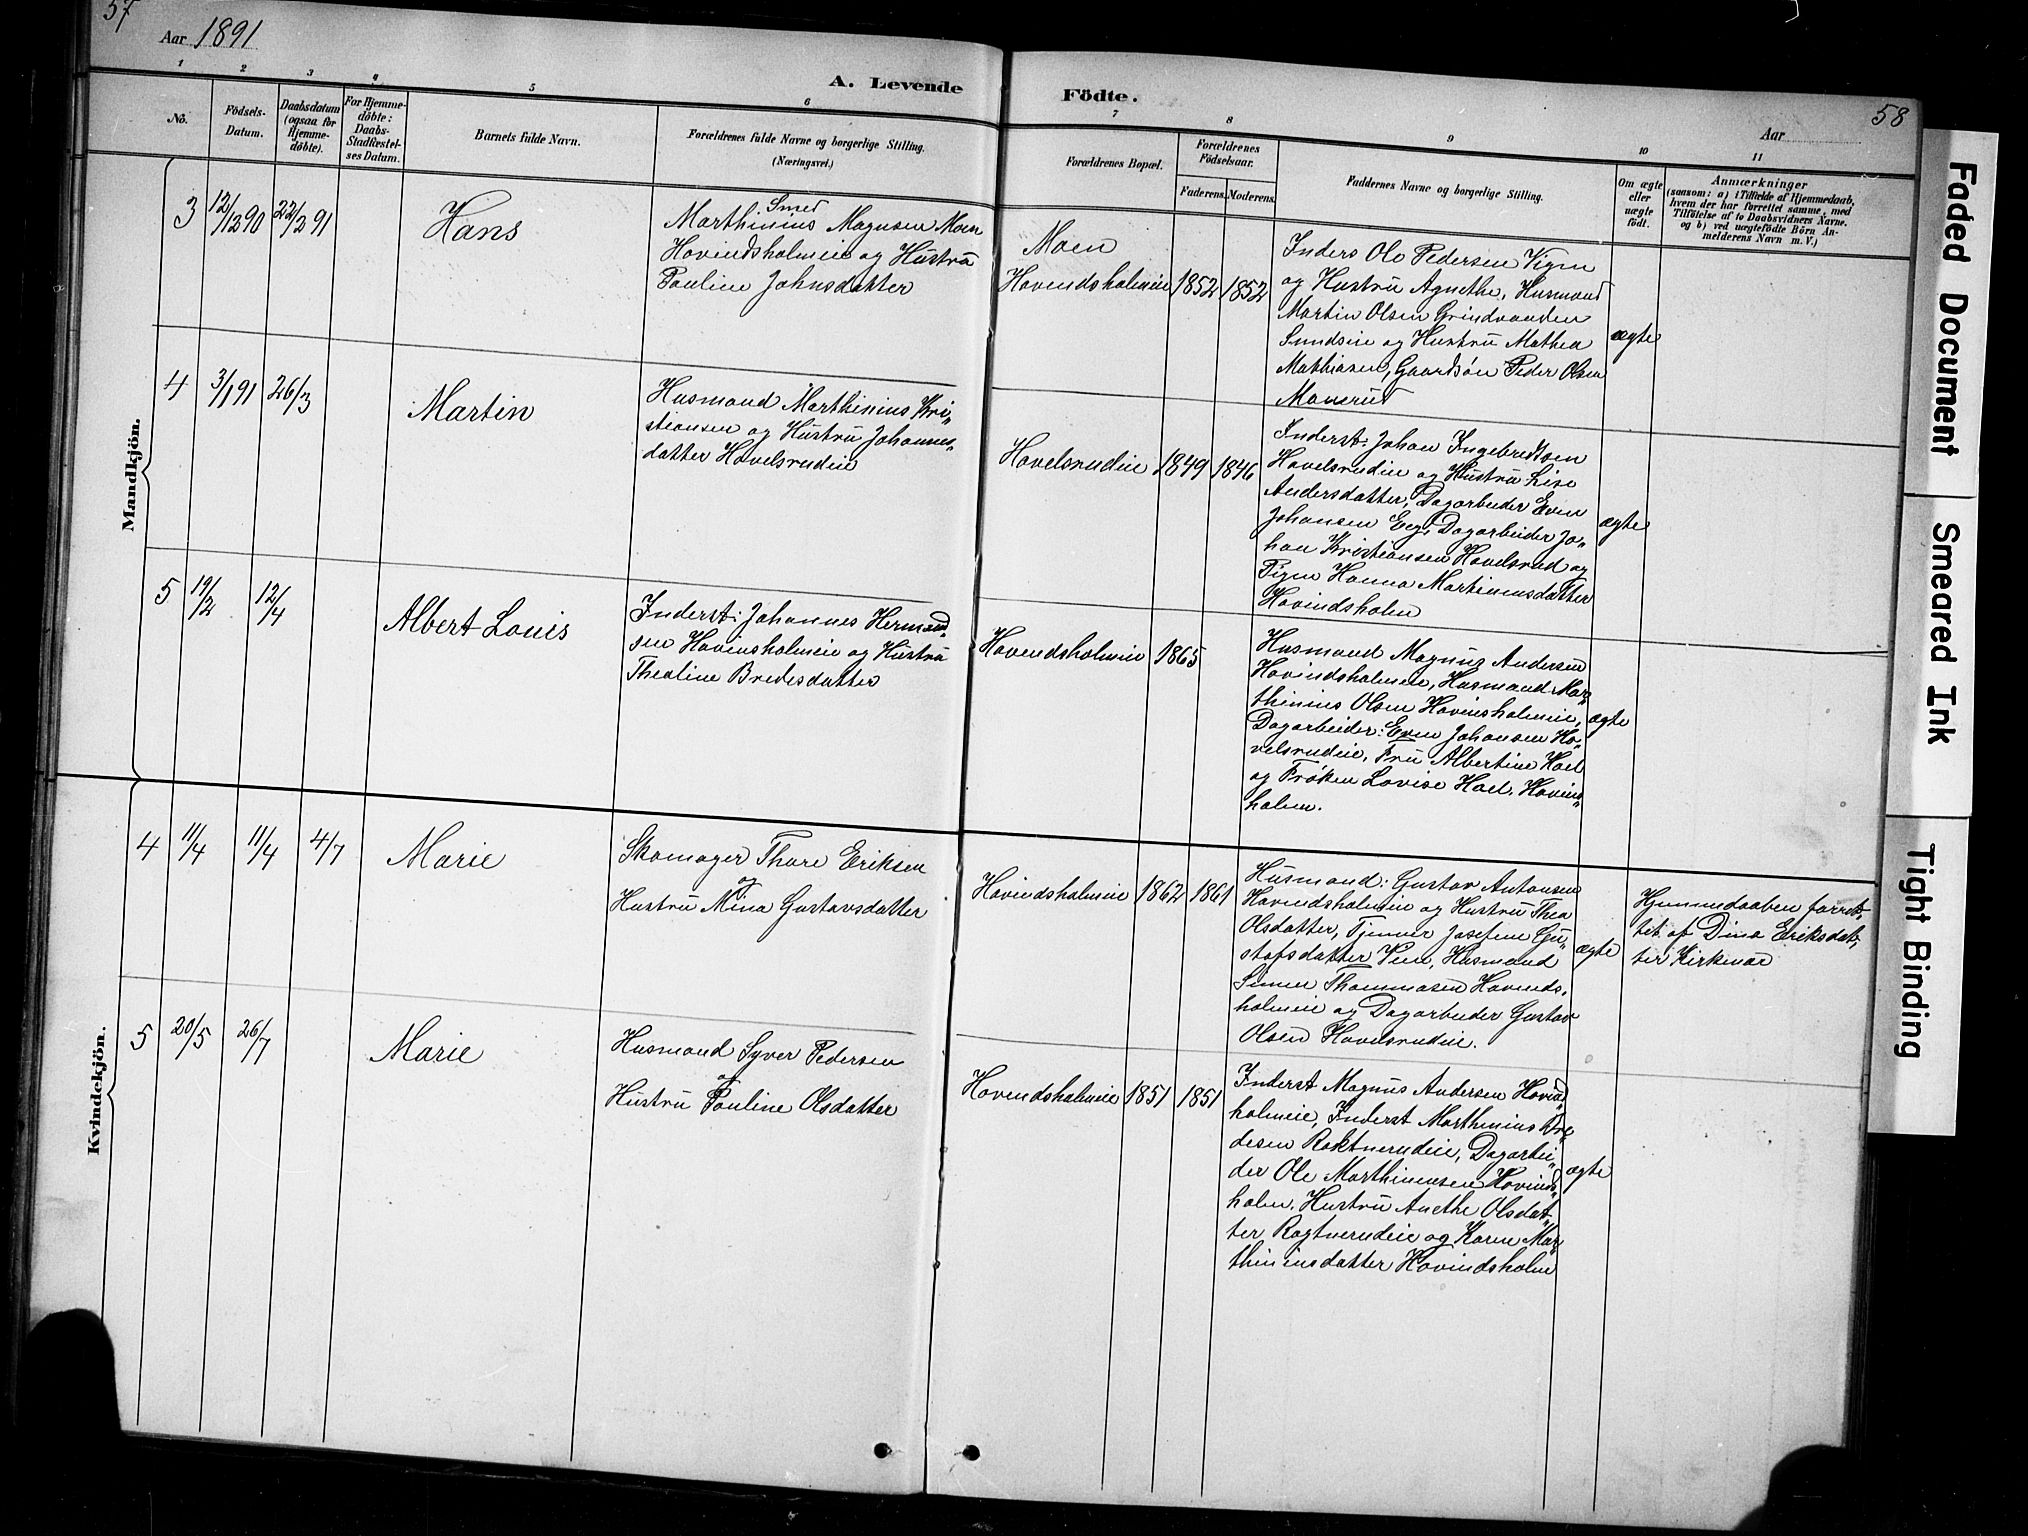 57
Aar 1891
A. Levende
Födte.
58
Aar
1
2
3
4
5
6
7
8
9
10
11
No.
Födsels-
Datum.
Daabsdatum
(ogsaa for
Hjemme-
döbte).
For Hjemme-
döbte:
Daabs-
Stadfæstel-
ses Datum.
Barnets fulde Navn.
Forældrenes fulde Navne og borgerlige Stilling.
(Næringsvei.)
Forældrenes Bopæl.
Forældrenes
Födselsaar.
Faderens.
Moderens.
Faddernes Navne og borgerlige Stilling.
Om ægte
eller
uægte
födt.
Anmærkninger
(saasom: a) i Tilfælde af Hjemmedaab,
hvem der har forrettet samme, med
Tilföielse af to Daabsvidners Navne.
og b) ved uægtefödte Börn An-
melderens Navn m. V.)
Mandkjön.
3
12/12 90
22/2 91
Hans
Smed
Marthinius Magnsen Moen
Hovindsholmeie og Hustru
Pauline Johnsdatter
Moen
Hovindsholmeie
1852
1852
Inders Ole Pedersen Vigen
og Hustru Agnethe, Husmand
Martin Olsen Grindvanden
Sundseie og Hustru Mathea
Mathiasen, Gaardsøn Peder Olsen
ægte
4
3/1 91
26/3
Martin
Husmand Marthinius Kri„
stiansen og Hustru Johannes„
datter Hovelsrudeie
Hovelsrudeie
1849
1846
Inderst: Johan Ingebredtsen
Hovelsrudeie og Hustru Lise
Andersdatter, Dagarbeider Even
Johansen Eeg, Dagarbeider Jo„
han Kristiansen Hovelsrud og
Pigen Hanna Martiniusdatter
Hovindsholm
ægte
5
19/2
12/4
Albert Louis
Inderst: Johannes Hermand„
sen Hovinsholmeie og Hustru
Thealine Bredesdatter
Hovindsholmeie
1865
Husmand Magnus Andersen
Hovindsholmeie, Husmand Mar„
thinius Olsen Hovinsholmeie,
Dagarbeider: Even Johansen Ho„
velsrudeie, Fru Albertine Hoel
og Frøken Lovise Hoel, Hovinds„
holm.
ægte
Kvindekjön.
4
11/4
11/4
4/7
Marie
Skomager Thore Eriksen
og
Hustru Mina Gustavsdatter
Hovindsholmeie
1862
1861
Husmand: Gustav Antonsen
Hovindsholmeie og Hustru Thea
Olsdatter, Tjener Josefine Gu„
stafsdatter Veen, Husmand
Simen Thommasen Hovinds„
holmeie og Dagarbeider Gustav
Olsen Hovelsrudeie.
ægte
Hjemmedaaben forret„
tet af Dina Eriksdat„
ter Kirkenæe
5
20/5
26/7
Marie
Husmand Syver Pedersen
og
Hustru Pauline Olsdatter
Hovindsholmeie
1851
1851
Inderst Magnus Andersen Hovind„
holmeie, Inderst Marthinius Bre„
desen Raktnerudeie, Dagarbei„
der Ole Marthinusen Hovinds„
holm, Hustru Anethe Olsdat„
ter Ragtnerudeie og Karen Mar„
thiniusdatter Hovindsholm
ægte
Faded Document
Smeared Ink
Tight Binding